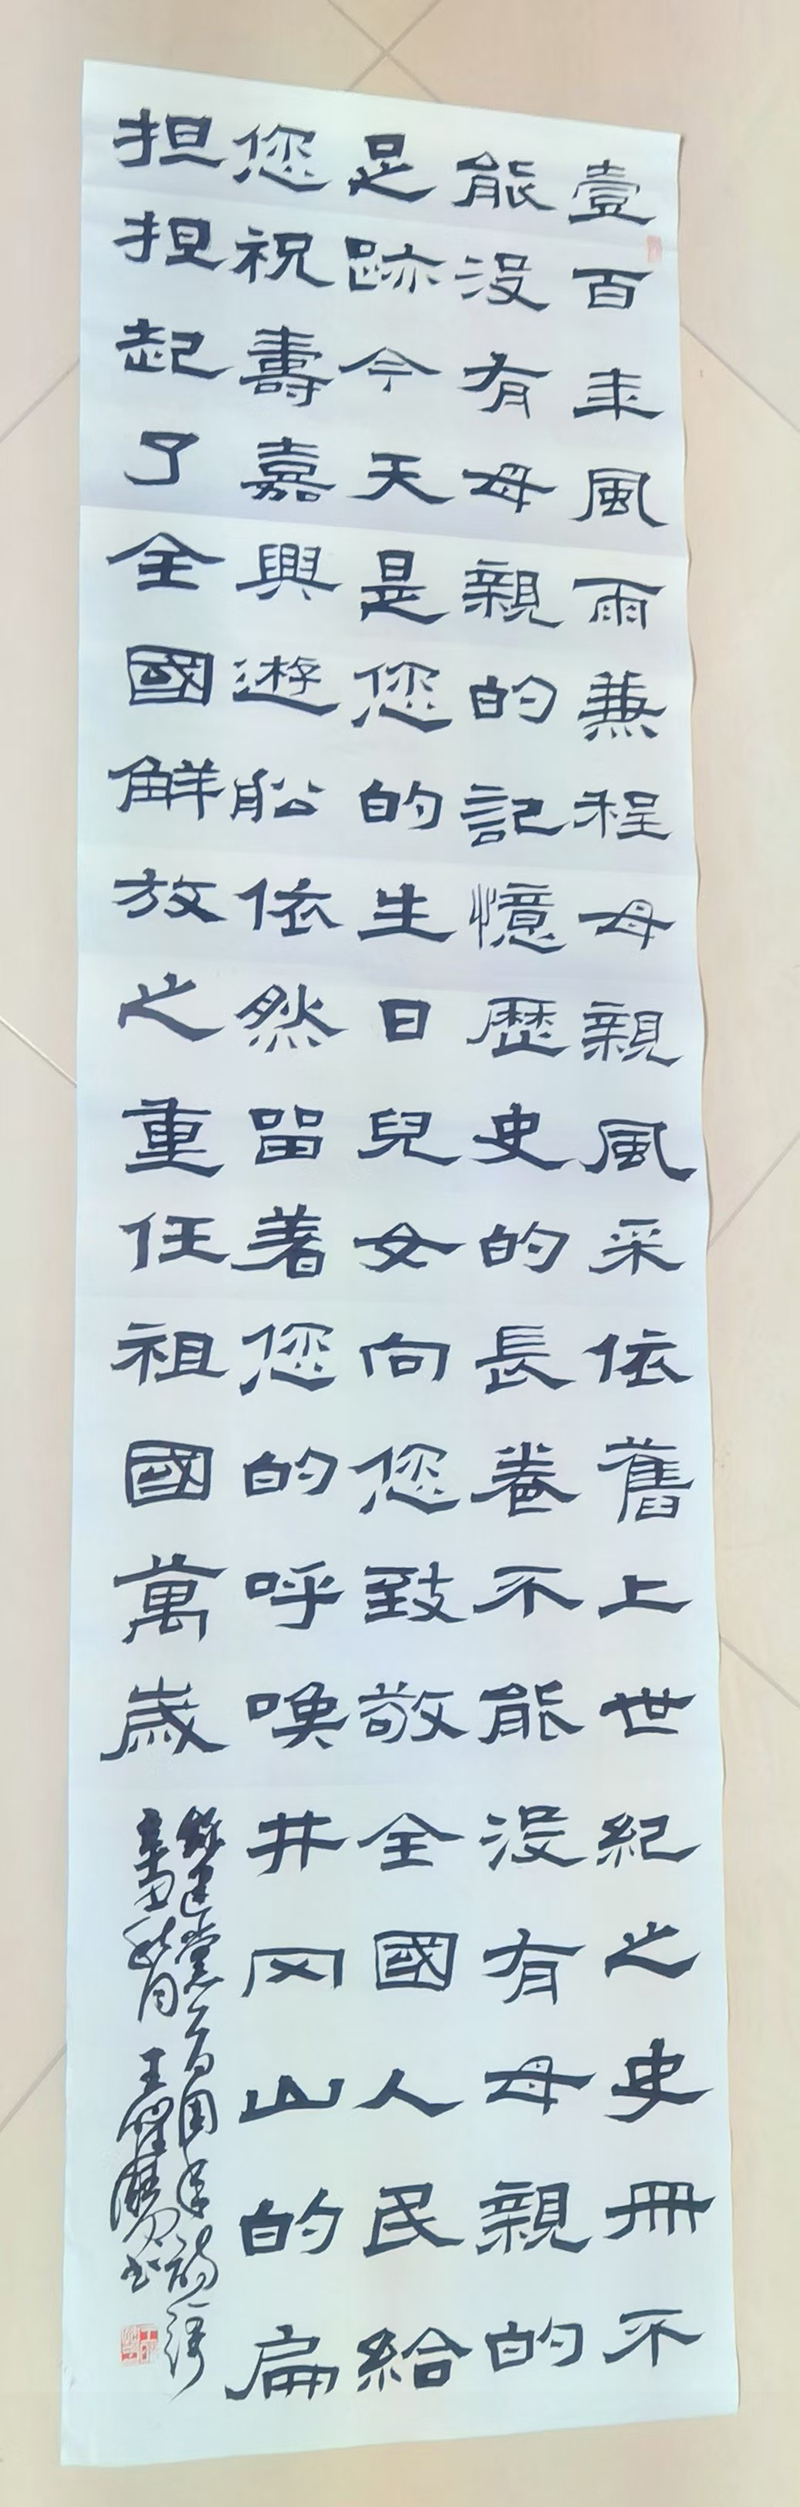 壹百年風雨兼程母親風采依舊上世紀之史冊不
能没有母親的記憶歷史的長卷不能没有母親的
足跡今天是您的生日兒女向您致敬全國人民給
您祝壽嘉興遊船依然留著您的呼唤井冈山的扁
担担起了全國解放之重任祖國萬歲
建黨百周年
辛丑秋月 王